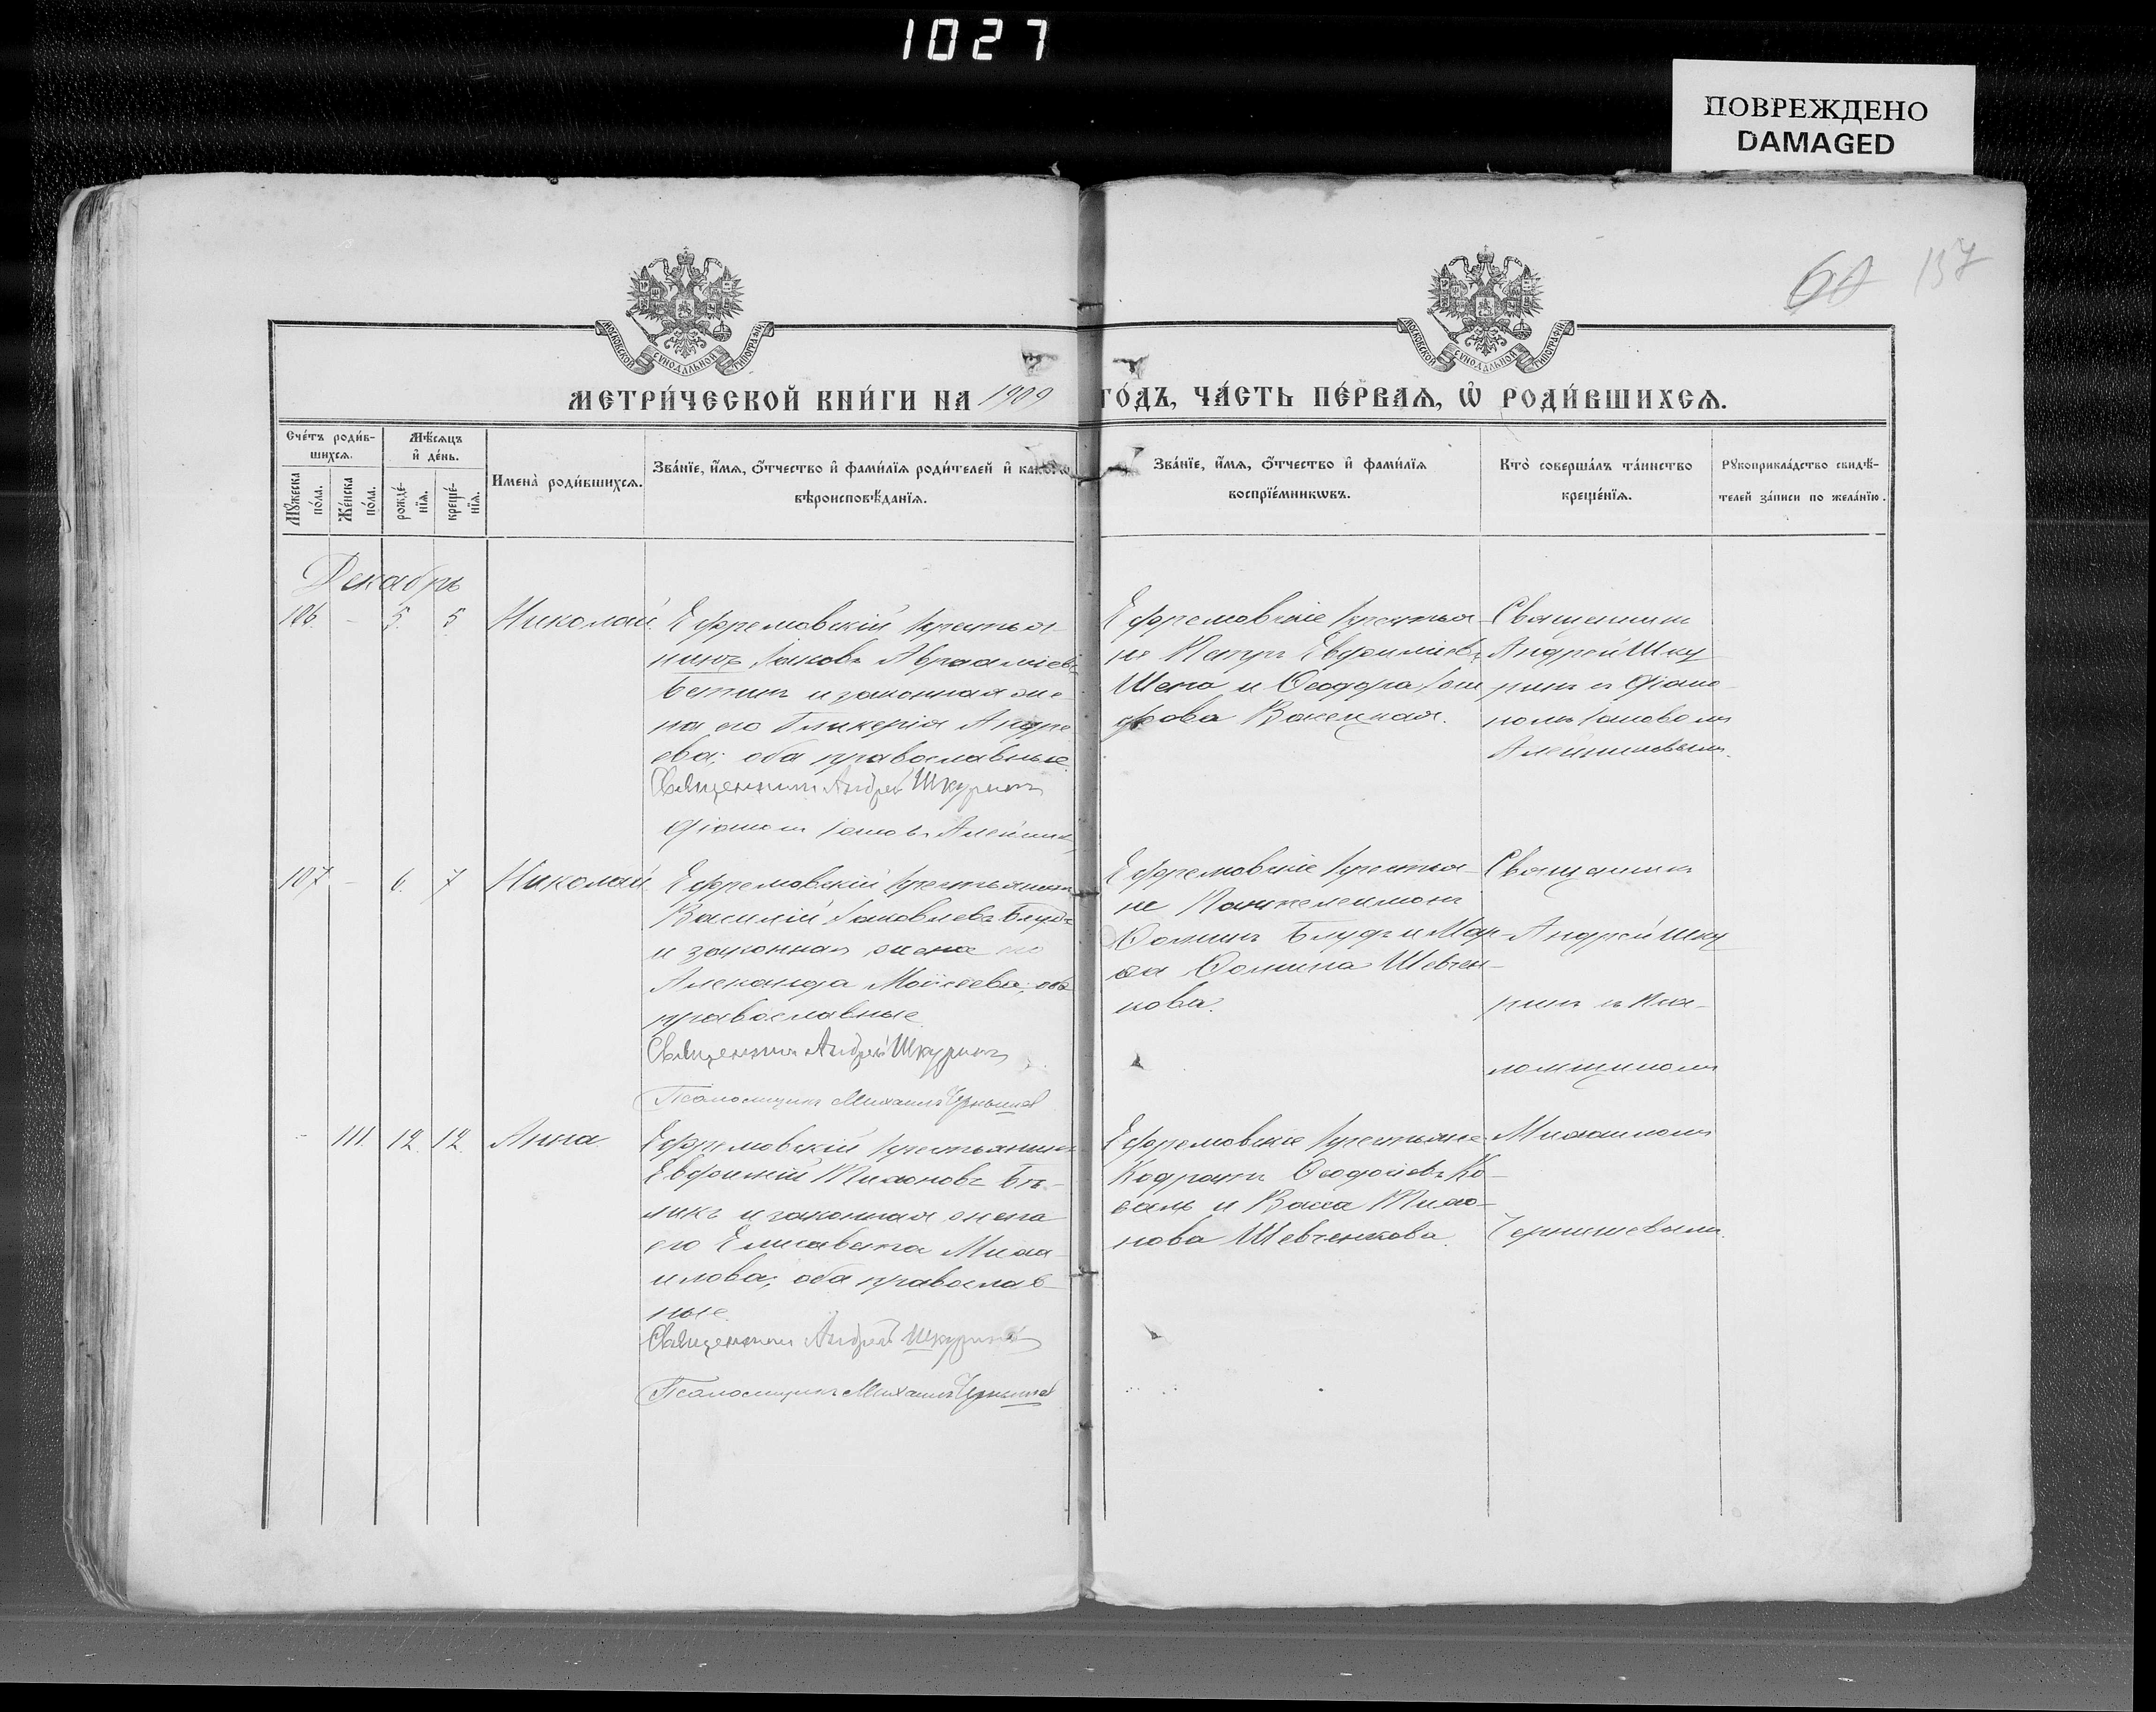 1027
ПОВРЕЖДЕНО
DAMAGED
60 137
МОСКОВСКОЙ СѴНОДАЛЬНОЙ ТИПОГРАФІИ
МОСКОВСКОЙ СѴНОДАЛЬНОЙ ТИПОГРАФІИ
МЕТРИ́ЧЕСКОЙ КНИ́ГИ НА 1909 ГО́ДЪ, ЧА́СТЬ ПЕ́РВАѦ, Ѡ҆ РОДИ́ВШИХСѦ.
Счéтъ роди́в-
шихсѧ.
Мꙋ́жеска
по́ла.
Же́нска
по́ла.
Мѣ́сѧцъ
и҆ де́нь.
рожде́-
нїѧ.
креще́-
нїѧ.
И҆мена̀ роди́вшихсѧ.
Зва́нїе, и҆́мѧ, ѻ҆́тчество и҆ фами́лїѧ роди́телей и҆ како́гѡ
вѣроисповѣ́данїѧ.
Зва́нїе, и҆́мѧ, ѻ҆́тчество и҆ фами́лїѧ
воспрїе́мникѡвъ.
Кто̀ соверша́лъ та́инство
креще́нїѧ.
Рꙋкоприкла́дство свидѣ́-
телей за́писи по жела́нїю.
Декабрь
106. - 5. 5 Николай.
Ефремовскій крестья-
нинъ Іаковъ Авраамієвъ
и законная же-
на его Гликерія Андре-
ева; оба православные.
Священникъ Андрей Шкуринъ
Діаконъ Іаковъ Алейник
Ефремовскіе крестья-
не Петръ Евфиміевъ
Шепа и Ѳеодора
фова
Священникъ
Андрей Шку-
ринъ съ Діако-
номъ Іаковомъ
Алейниковымъ.
107 - 6. 7 Николай.
Ефремовскій крестьянинъ
Василій Іаковлевъ Блудъ
и законная жена его
Александра Моисеева; оба
православные
Священникъ Андрей Шкуринъ
Псаломщикъ Михаилъ Чернышев
Ефремовскіе крестья-
не Пантелеимонъ
Ѳоминъ Блудъ и Мар-
ѳа Ѳомина Шевчен-
кова.
Священникъ
Андрей Шку-
ринъ съ Пса-
ломщикомъ
- 111. 12. 12. Анна.
Ефремовскій крестьянинъ
Евфимій Тихоновъ Бѣ-
ликъ и законная жена
его Елисавета Миха-
илова; оба православ-
ные.
Священникъ Андрей Шкуринъ
Псаломщикъ Михаилъ Чернышев
Ефремовскіе крестьяне
Кодратъ Ѳеодосіевъ Ко-
валь и Васса Тихо-
нова Шевченкова.
Михаиломъ
Чернышевымъ.